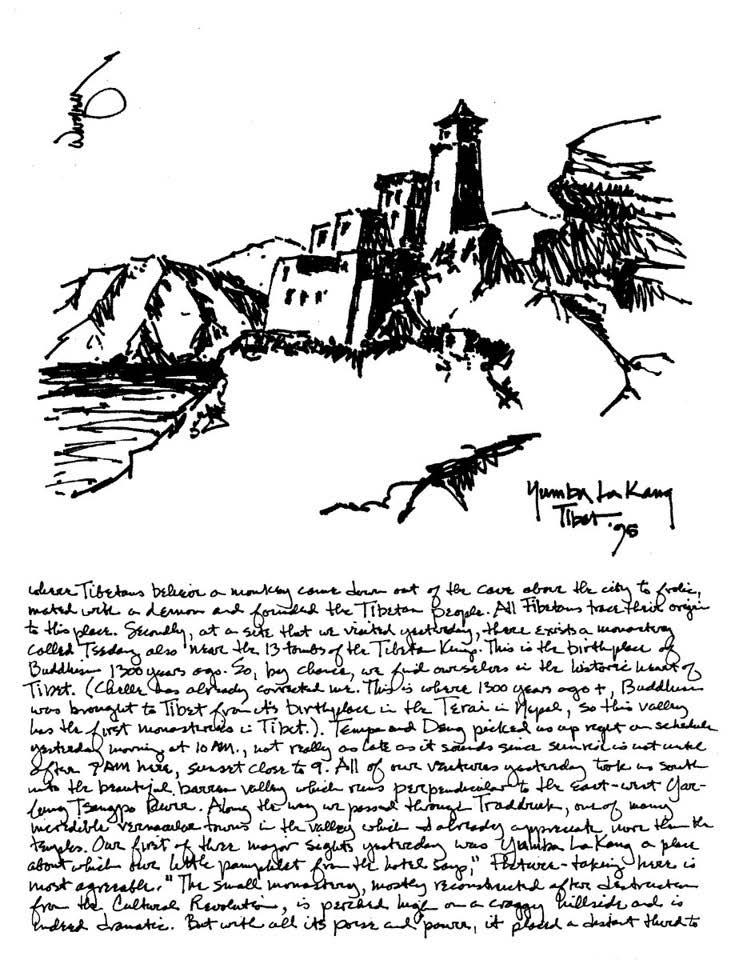 Yumba La Kang
Tibet '95
where Tibetans believe a monkey came down out of the cave above the city to frolic,
mated with a demon and founded the Tibetan people. All Tibetans trace their origin
to this place. Secondly, at a site that we visited yesterday, there exists a monastery
called Tsedang also near the 13 tombs of the Tibetan Kings. This is the birthplace of
Buddhism 1300 years ago. So, by chance, we find ourselves in the historic heart of
Tibet. ( has already corrected me. This is where 1300 years ago +, Buddhism
was brought to Tibet from its birthplace in the Terai in Nepal, so this valley
has the first monasteries in Tibet.). Tempa and picked us up right on schedule
yesterday morning at 10 AM., not really as late as it sounds since sunrise is not until
after 8 AM here, sunset close to 9. All of our ventures yesterday took us south
into the beautiful, barren valley which runs perpendicular to the east-west Yar-
lung Tsangpo River. Along the way we passed through Traddruk, one of many
incredible vernacular towns in the valley which I already appreciate more than the
temples. Our first of three major sights yesterday was Yumba La Kang a place
about which our little pamphlet from the hotel says, "Picture-taking here is
most agreeable." The small monastery, mostly reconstructed after destruction
from the Cultural Revolution, is perched high on a craggy hillside and is
indeed dramatic. But with all its poise and power, it placed a distant third to